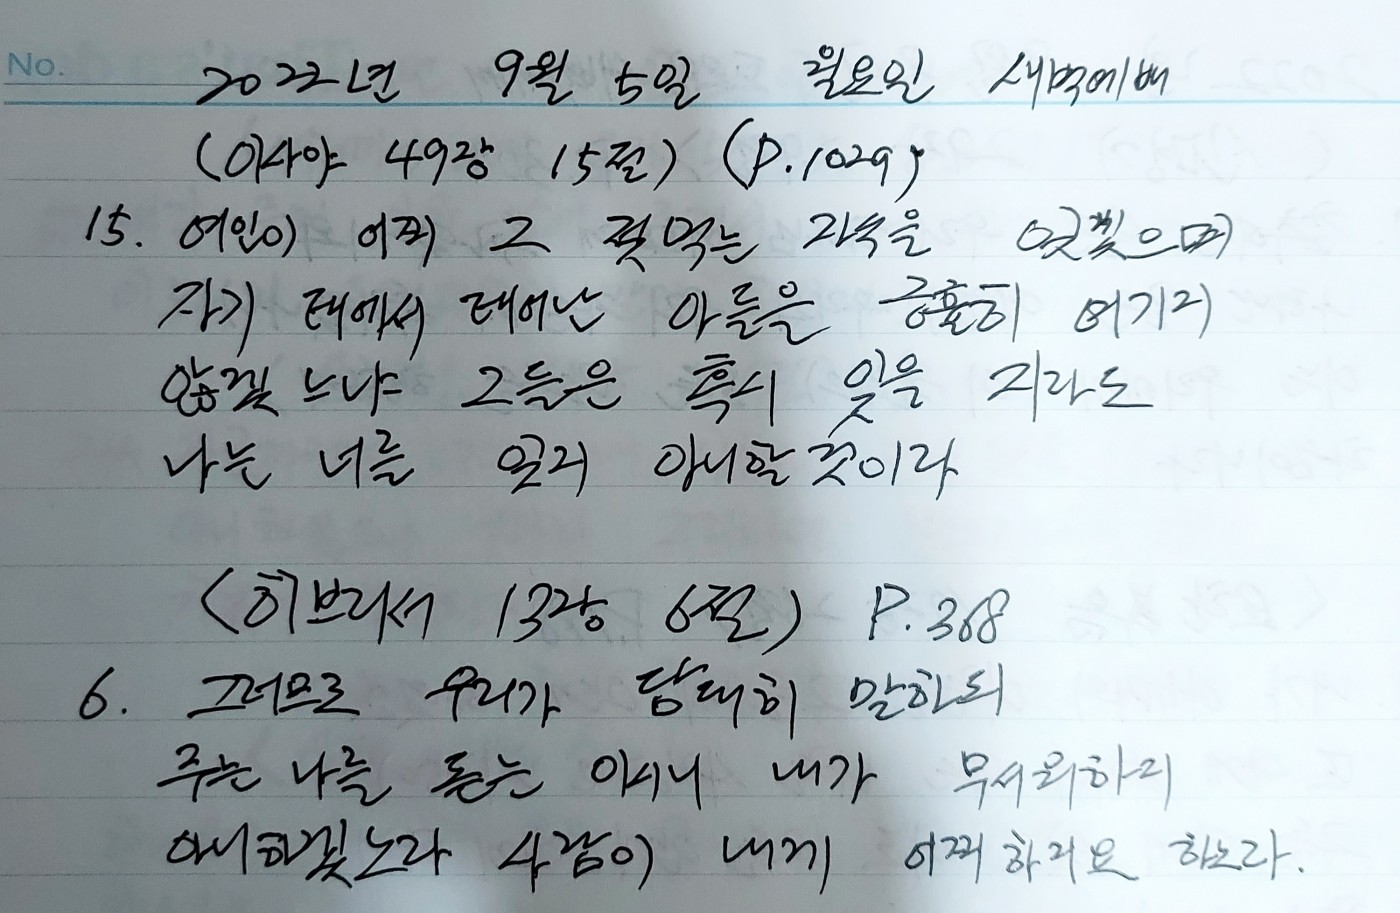 No.
2022년 9월 5일 월요일 새벽예배
(이사야 49장 15절) (P.1029)
15. 여인이 어찌 그 젖먹는 자식을 잊겠으며
자기 태에서 태어난 아들을 긍휼히 여기지
않겠느냐 그들은 혹시 잊을 지라도
나는 너를 잊지 아니할 것이라
<히브리서 13장 6절) P.368
6. 그러므로 우리가 담대히 말하되
주는 나를 돕는 이시니 내가 무서워하지
아니하겠노라 사람이 내게 어찌하리요 하노라.